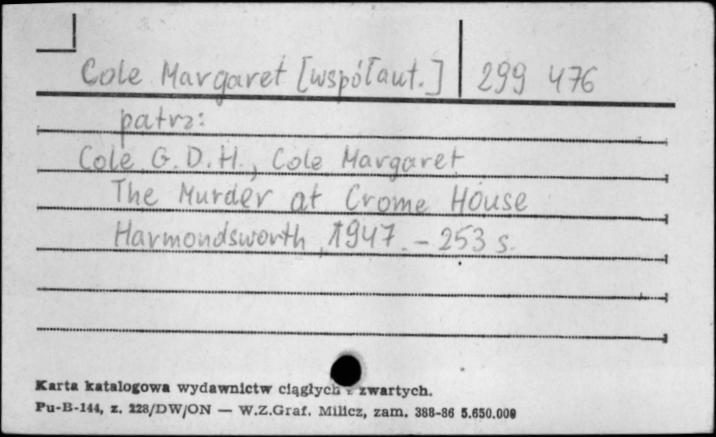 Cole Margaret [współaut.] 299 476
patrz:
Cole G.D.H., Cole Margaret
The Murder at Crome House
Harmondsworth, 1947. – 253 s.
Karta katalogowa wydawnictw ciągłych i zwartych.
Pu-B-144, z. 228/DW/ON — W.Z.Graf. Milicz, zam. 388-86 5.650.000